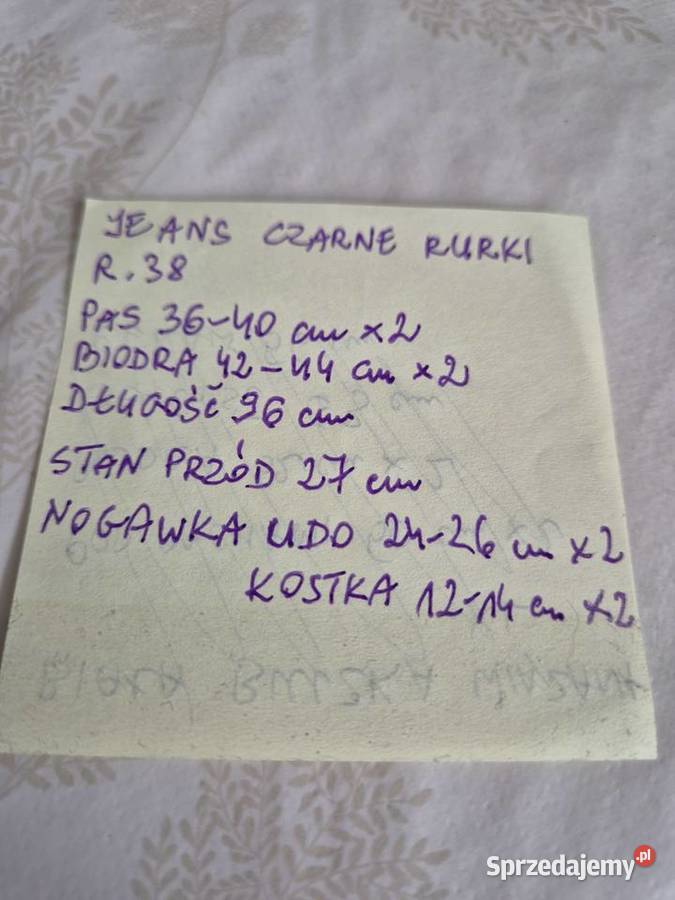 JEANS CZARNE RURKI
R. 38
PAS 36-40 cm x2
BIODRA 42-44 cm x2
DŁUGOŚĆ 96 cm
STAN PRZÓD 27 cm
NOGAWKA UDO 24-26 cm x2
KOSTKA 12-14 cm x2
Sprzedajemy.pl